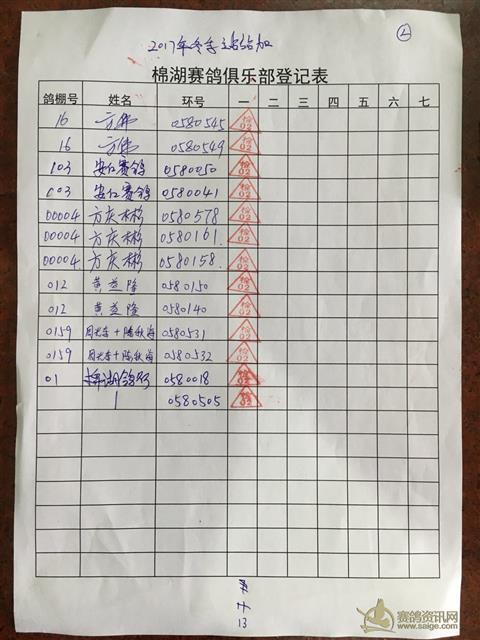 2017年冬季
②
棉湖赛鸽俱乐部登记表
鸽棚号 姓名 环号 一 二 三 四 五 六 七
16 方伟 0580545 检02
16 方伟 0580549 检02
003 安仁赛鸽 0580050 检02
003 安仁赛鸽 0580041 检02
00004 方庆彬 0580578 检02
00004 方庆彬 0580161 检02
00004 方庆彬 0580158 检02
012 黄益隆 0580150 检02
012 黄益隆 0580140 检02
0159 0580531 检02
0159 0580532 检02
01 棉湖鸽 0580018
0580505
共
13
赛鸽资讯网
www.saige.com